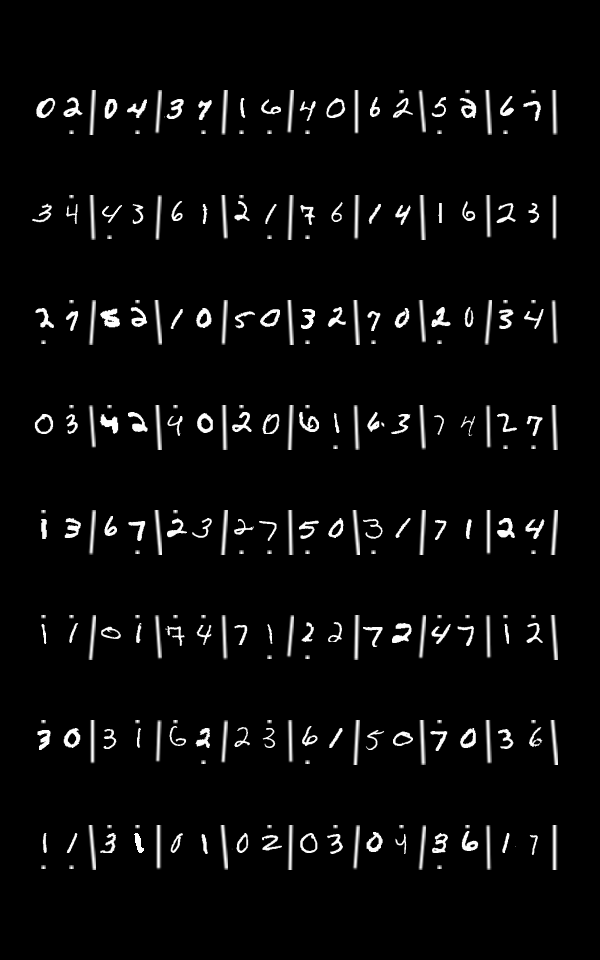 0 2 | 0 4 | 3 7 | 1 6 | 4 0 | 6 2 | 5 2 | 6 7 |
3 4 | 4 3 | 6 1 | 2 1 | 7 6 | 1 4 | 1 6 | 2 3 |
2 7 | 5 2 | 1 0 | 5 0 | 3 2 | 7 0 | 2 0 | 3 4 |
0 3 | 4 2 | 4 0 | 2 0 | 6 1 | 6 3 | 7 4 | 2 7 |
1 3 | 6 7 | 2 3 | 2 7 | 5 0 | 3 1 | 7 1 | 2 4 |
1 1 | 0 1 | 7 4 | 7 1 | 2 2 | 7 2 | 4 7 | 1 2 |
3 0 | 3 1 | 6 2 | 2 3 | 6 1 | 5 0 | 7 0 | 3 6 |
1 1 | 3 1 | 0 1 | 0 2 | 0 3 | 0 4 | 3 6 | 1 7 |